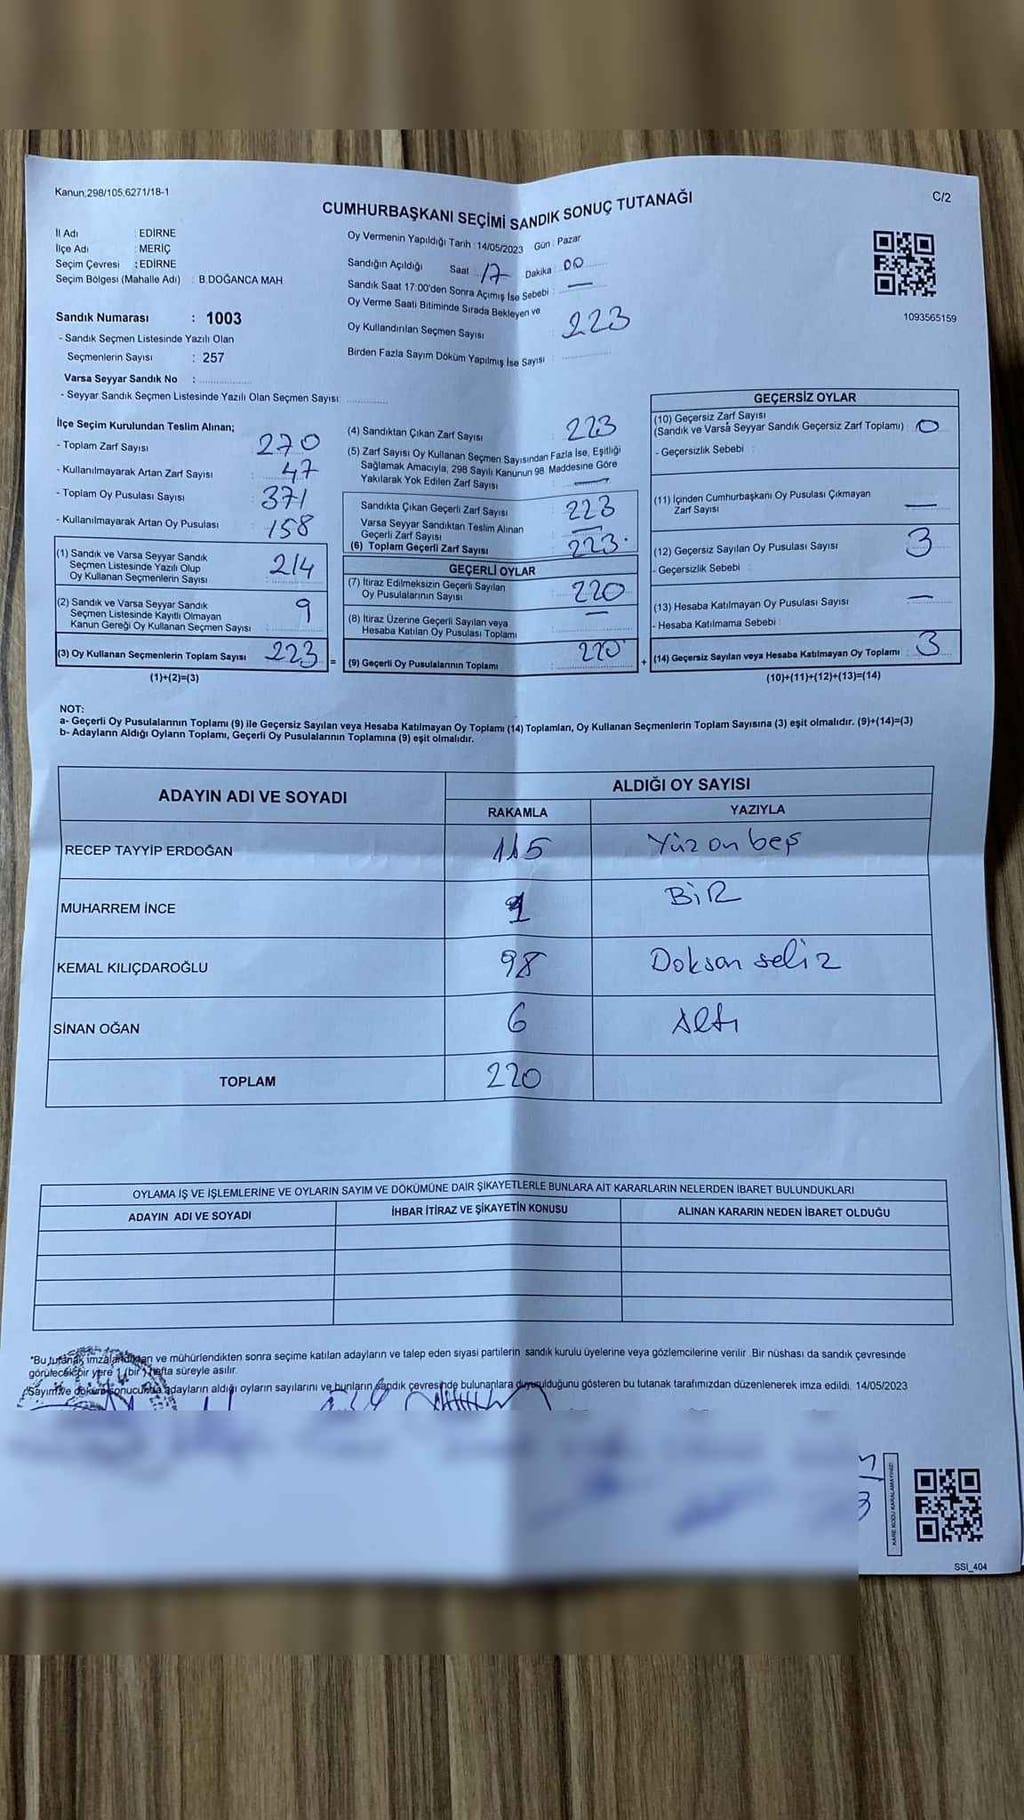 Kanun,298/105,6271/18-1
C/2
CUMHURBAŞKANI SEÇİMİ SANDIK SONUÇ TUTANAĞI
İl Adı : EDİRNE
İlçe Adı : MERİÇ
Seçim Çevresi : EDİRNE
Seçim Bölgesi (Mahalle Adı) : B.DOĞANCA MAH
Sandık Numarası : 1003
- Sandık Seçmen Listesinde Yazılı Olan
Seçmenlerin Sayısı : 257
Varsa Seyyar Sandık No :
- Seyyar Sandık Seçmen Listesinde Yazılı Olan Seçmen Sayısı:
Oy Vermenin Yapıldığı Tarih : 14/05/2023 Gün : Pazar
Sandığın Açıldığı Saat 17 Dakika : 00
Sandık Saat 17:00'den Sonra Açımış İse Sebebi : —
Oy Verme Saati Bitiminde Sırada Bekleyen ve
Oy Kullandırılan Seçmen Sayısı : 223
Birden Fazla Sayım Döküm Yapılmış İse Sayısı :
1093565159
İlçe Seçim Kurulundan Teslim Alınan;
- Toplam Zarf Sayısı : 270
- Kullanılmayarak Artan Zarf Sayısı : 47
- Toplam Oy Pusulası Sayısı : 371
- Kullanılmayarak Artan Oy Pusulası : 158
(1) Sandık ve Varsa Seyyar Sandık
Seçmen Listesinde Yazılı Olup
Oy Kullanan Seçmenlerin Sayısı : 214
(2) Sandık ve Varsa Seyyar Sandık
Seçmen Listesinde Kayıtlı Olmayan
Kanun Gereği Oy Kullanan Seçmen Sayısı : 9
(3) Oy Kullanan Seçmenlerin Toplam Sayısı : 223 =
(1)+(2)=(3)
(4) Sandıktan Çıkan Zarf Sayısı : 223
(5) Zarf Sayısı Oy Kullanan Seçmen Sayısından Fazla İse, Eşitliği
Sağlamak Amacıyla, 298 Sayılı Kanunun 98. Maddesine Göre
Yakılarak Yok Edilen Zarf Sayısı : —
Sandıkta Çıkan Geçerli Zarf Sayısı : 223
Varsa Seyyar Sandıktan Teslim Alınan
Geçerli Zarf Sayısı : —
(6) Toplam Geçerli Zarf Sayısı : 223
GEÇERLİ OYLAR
(7) İtiraz Edilmeksizin Geçerli Sayılan
Oy Pusulalarının Sayısı : 220
(8) İtiraz Üzerine Geçerli Sayılan veya
Hesaba Katılan Oy Pusulası Toplamı : —
(9) Geçerli Oy Pusulalarının Toplamı : 220 +
GEÇERSİZ OYLAR
(10) Geçersiz Zarf Sayısı
(Sandık ve Varsa Seyyar Sandık Geçersiz Zarf Toplamı) : 0
- Geçersizlik Sebebi :
(11) İçinden Cumhurbaşkanı Oy Pusulası Çıkmayan
Zarf Sayısı : —
(12) Geçersiz Sayılan Oy Pusulası Sayısı : 3
- Geçersizlik Sebebi :
(13) Hesaba Katılmayan Oy Pusulası Sayısı : —
- Hesaba Katılmama Sebebi :
(14) Geçersiz Sayılan veya Hesaba Katılmayan Oy Toplamı : 3
(10)+(11)+(12)+(13)=(14)
NOT:
a- Geçerli Oy Pusulalarının Toplamı (9) ile Geçersiz Sayılan veya Hesaba Katılmayan Oy Toplamı (14) Toplamları, Oy Kullanan Seçmenlerin Toplam Sayısına (3) eşit olmalıdır. (9)+(14)=(3)
b- Adayların Aldığı Oyların Toplamı, Geçerli Oy Pusulalarının Toplamına (9) eşit olmalıdır.
ADAYIN ADI VE SOYADI ALDIĞI OY SAYISI
RAKAMLA YAZIYLA
RECEP TAYYİP ERDOĞAN 115 Yüz on beş
MUHARREM İNCE 1 BİR
KEMAL KILIÇDAROĞLU 98 Doksan sekiz
SİNAN OĞAN 6 Altı
TOPLAM 220
OYLAMA İŞ VE İŞLEMLERİNE VE OYLARIN SAYIM VE DÖKÜMÜNE DAİR ŞİKAYETLERLE BUNLARA AİT KARARLARIN NELERDEN İBARET BULUNDUKLARI
ADAYIN ADI VE SOYADI İHBAR İTİRAZ VE ŞİKAYETİN KONUSU ALINAN KARARIN NEDEN İBARET OLDUĞU
*Bu tutanak imzalandıktan ve mühürlendikten sonra seçime katılan adayların ve talep eden siyasi partilerin sandık kurulu üyelerine veya gözlemcilerine verilir. Bir nüshası da sandık çevresinde
görülecek bir yere 1 (bir) hafta süreyle asılır.
Sayım ve döküm sonucunda adayların aldığı oyların sayılarını ve bunların sandık çevresinde bulunanlara duyurulduğunu gösteren bu tutanak tarafımızdan düzenlenerek imza edildi. 14/05/2023
KARE KODU KARALAMAYINIZ!
SSİ_404